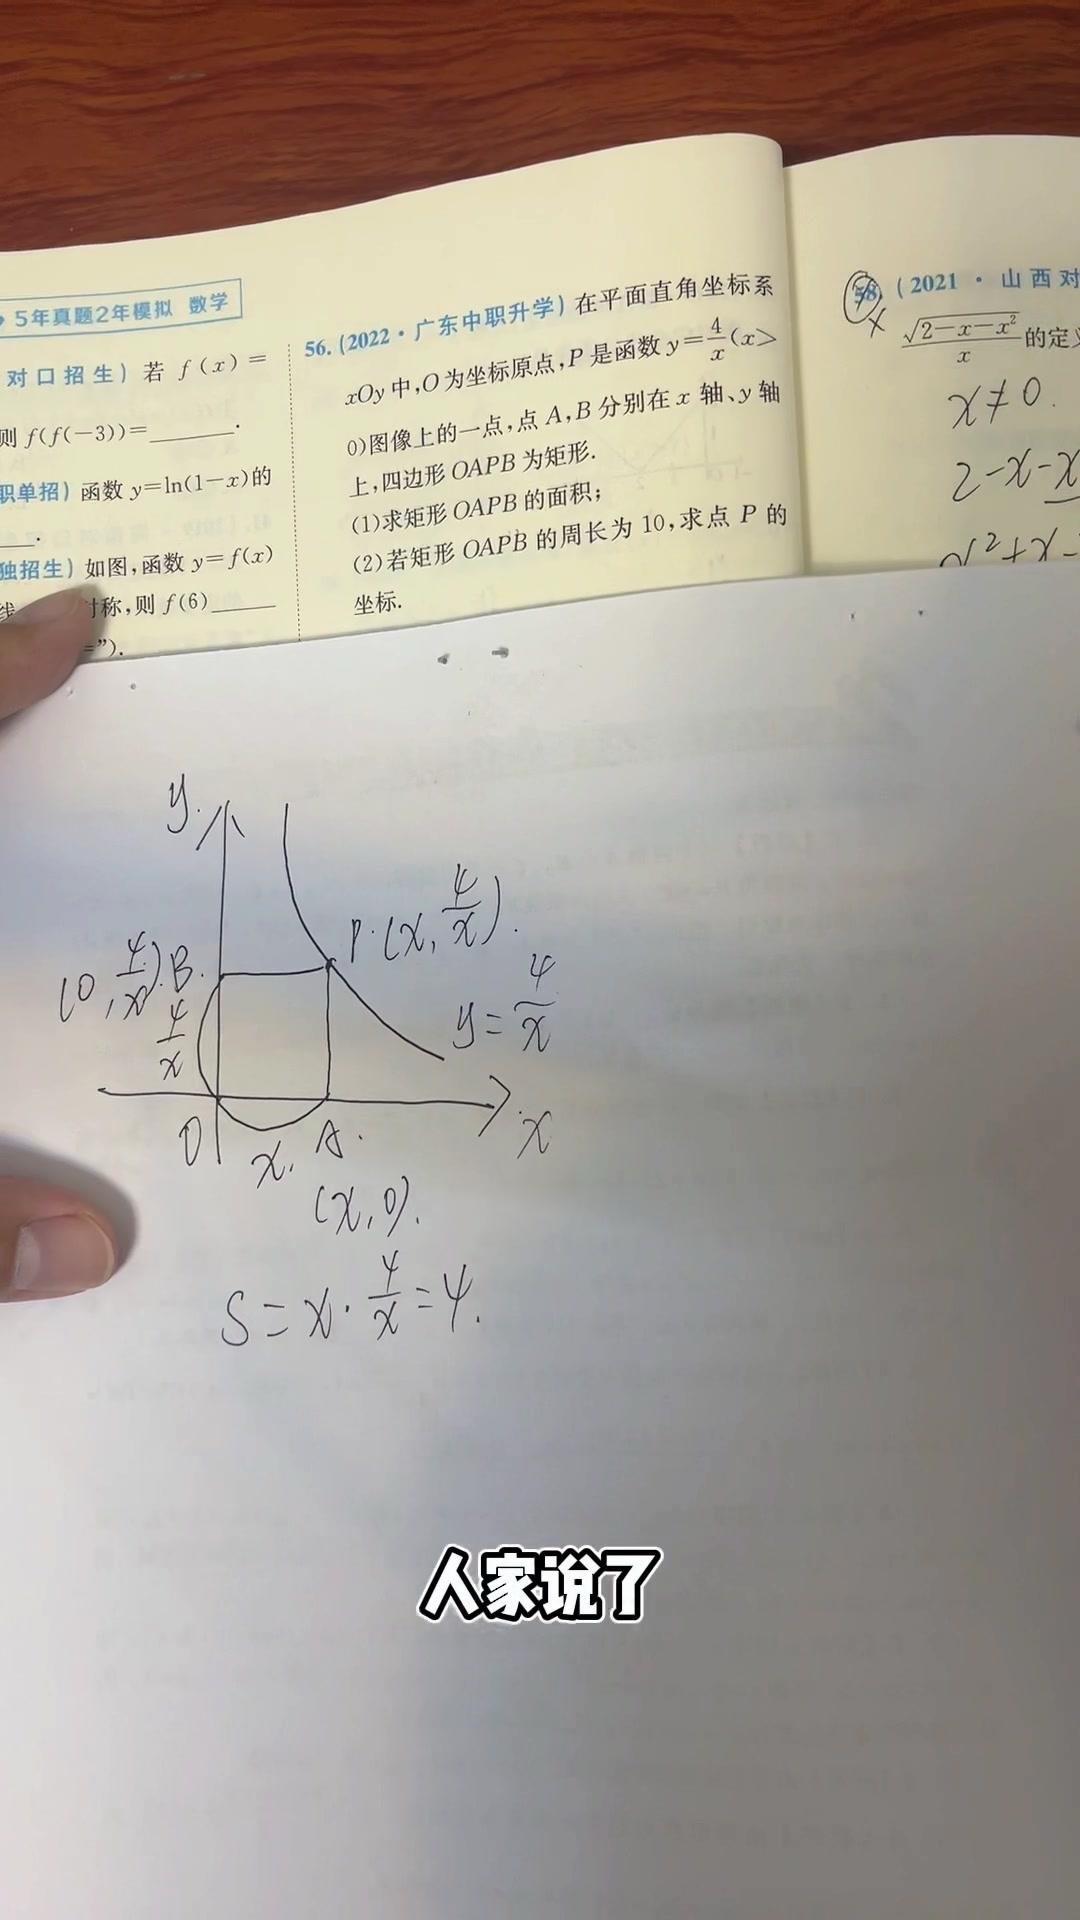 5年真题2年模拟 数学
对口招生) 若 f(x)=
则 f(f(-3))=______.
职单招) 函数 y=ln(1-x)的
____.
独招生) 如图,函数 y=f(x)
对称,则 f(6)____
=”).
56.(2022·广东中职升学) 在平面直角坐标系
xOy 中,O 为坐标原点,P 是函数 y=4/x(x>
0)图像上的一点,点 A,B 分别在 x 轴、y 轴
上,四边形 OAPB 为矩形.
(1)求矩形 OAPB 的面积;
(2)若矩形 OAPB 的周长为 10,求点 P 的
坐标.
58. (2021·山西对
√(2-x-x²)/x 的定义
x≠0.
2-x-x
y
P.(x, 4/x).
(0, 4/x) B.
4/x
y=4/x
O
x.
A.
x
(x,0).
S=x·4/x=4.
人家说了